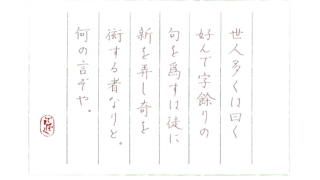 世人多くは曰く
好んで字餘りの
句を為すは徒に
新を弄し奇を
衒する者なりと。
何の言ぞや。